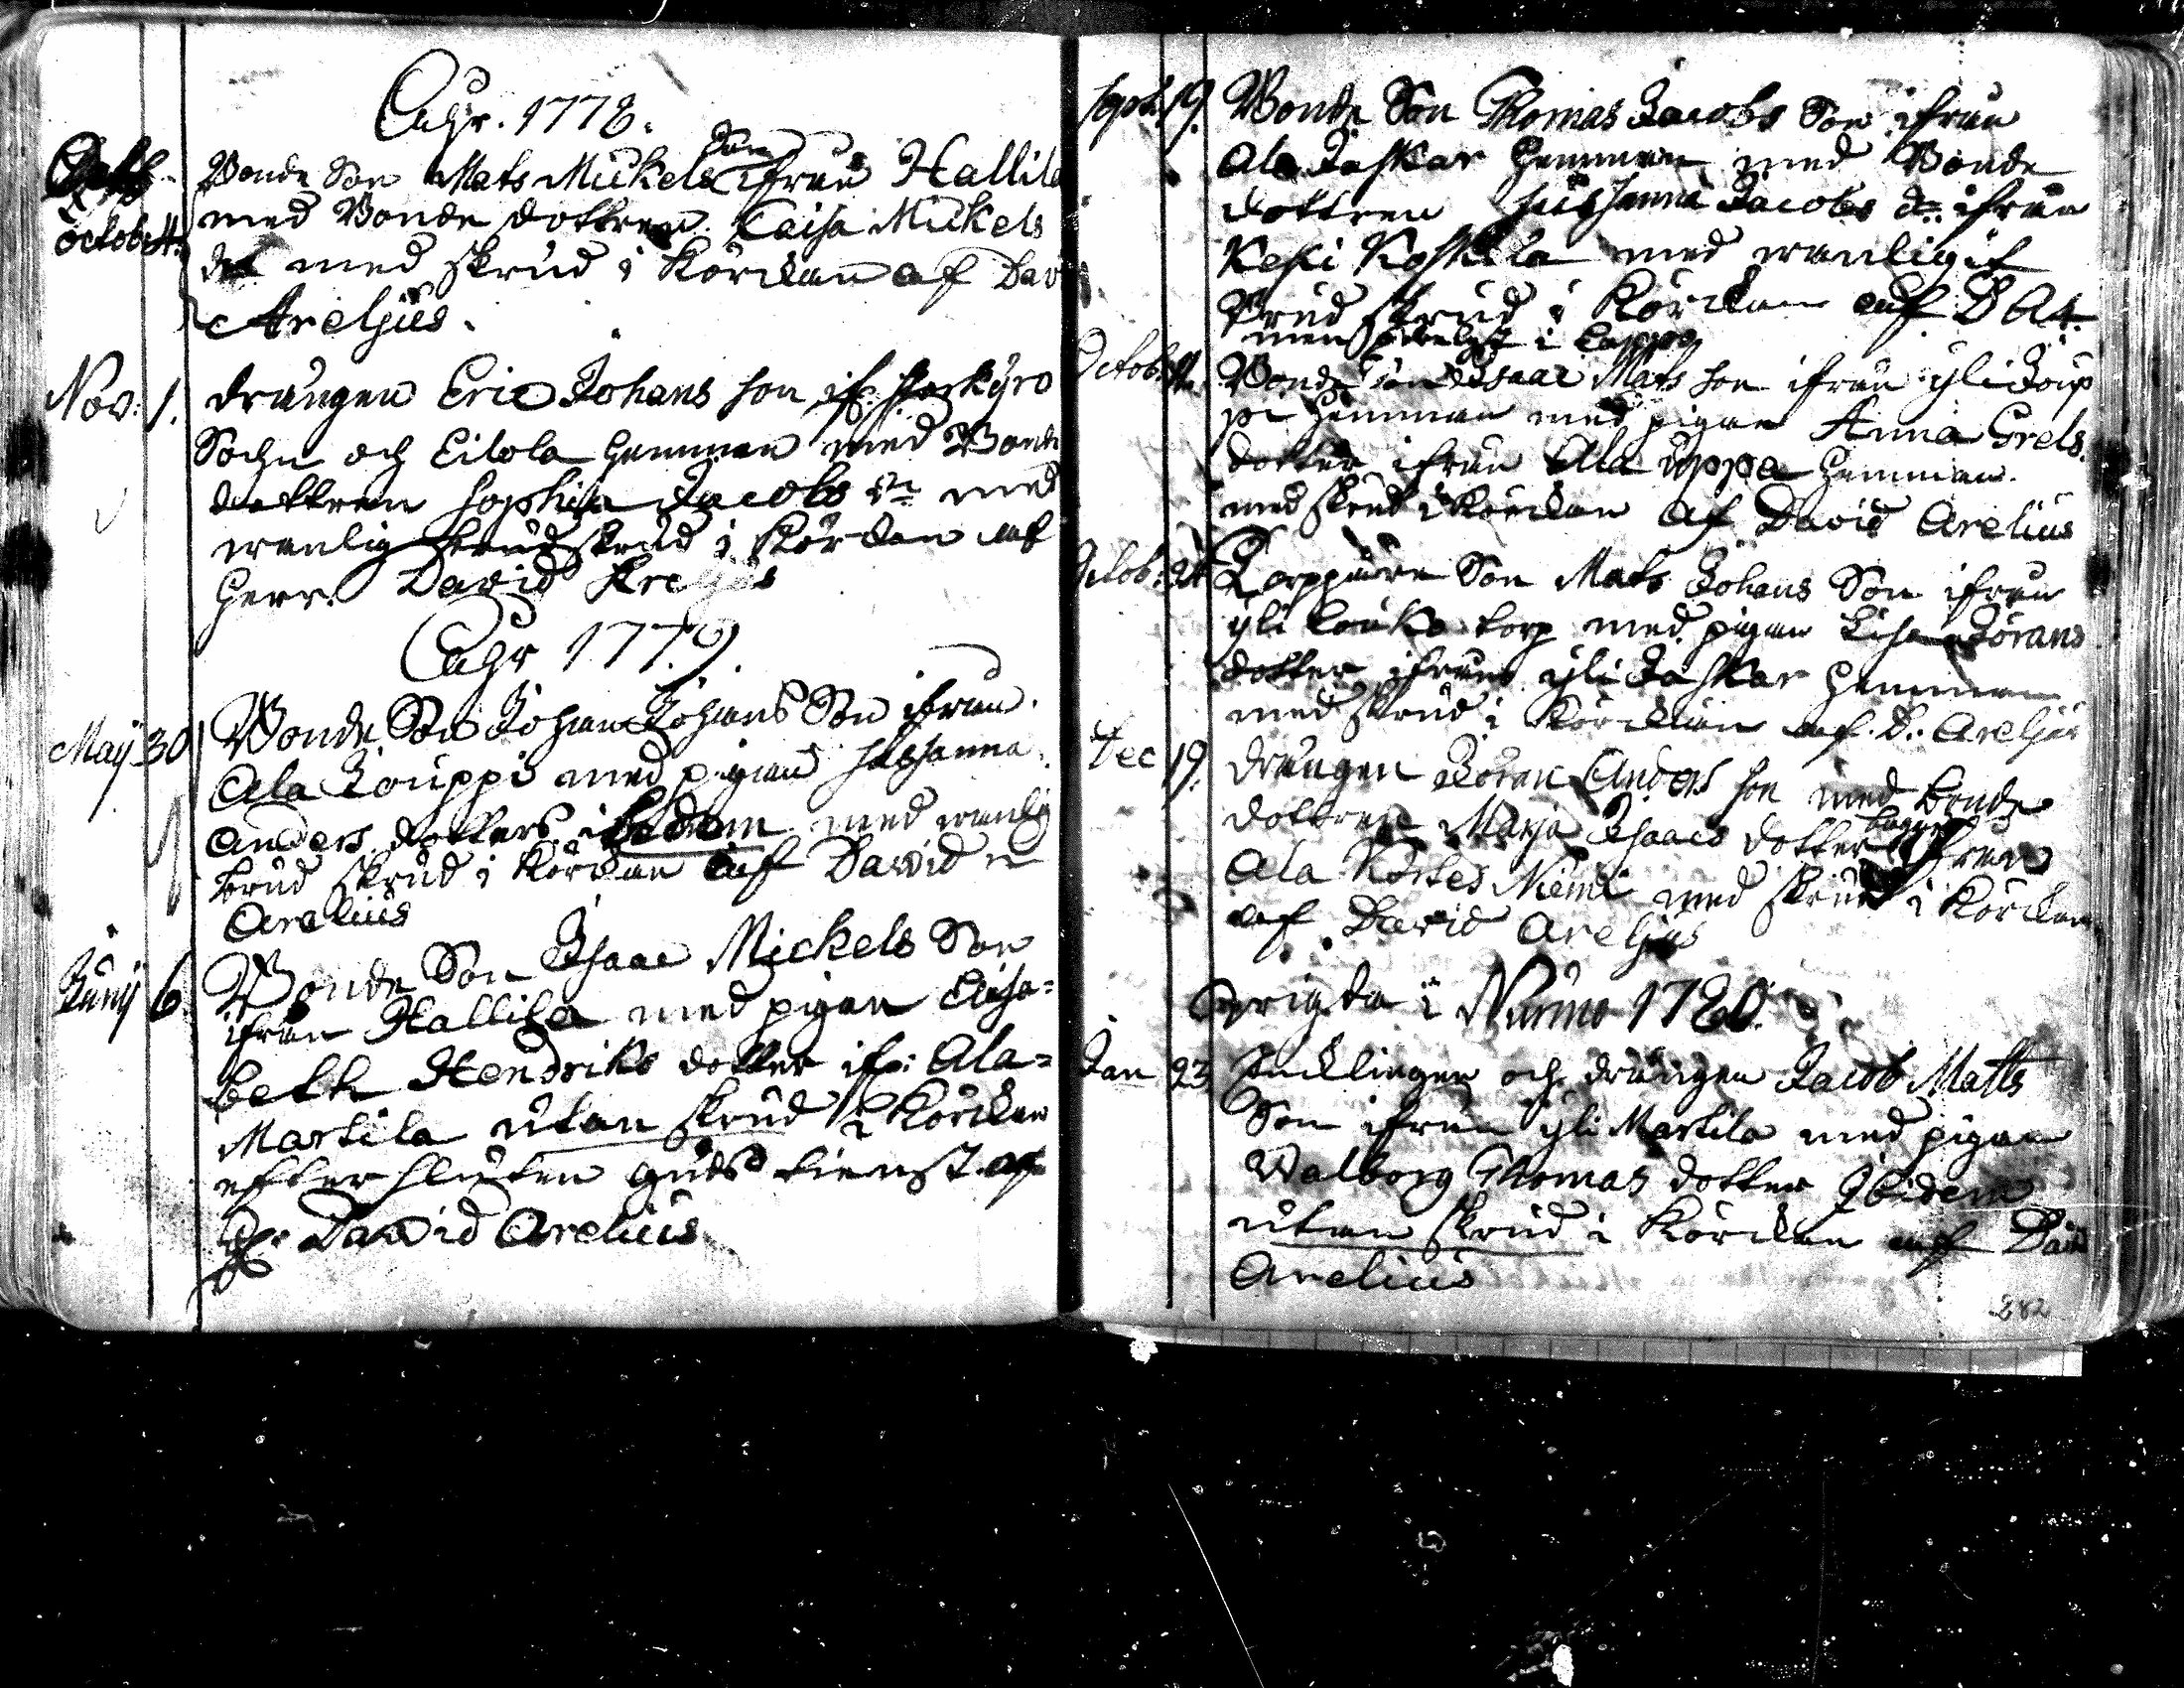 Åhr. 1778.
Octob: 4. Bonde Son Mats Mickels Son ifrån Hallila
med Bonde dottren Caisa Mickels
dr med skrud i Körckan af Dav
Areljus.
Nov: 1. drängen Eric Johans son if: Storkyro
Sochn och Eilola hemman med Bonde
dottren Sophia Jacobs dr med
wanlig brudskrud i Körckan af
Herr. David Areljus
Åhr 1779.
Maij 30 Bonde Son Johan Johans Son ifrån
Ala Jouppi med pigan Susanna
Anders dotter ibidem med wanlig
brud skrud i Körckan af David
Arelius
Junij 6. Bonde Son Isaac Mickels Son
ifrån Hallila med pigan Elisa=
beth Hendriks dotter ifr: Ala=
Martila utan skrud i Körckan
efter sluten guds tienst af
David Arelius
Sept. 19. Bonde Son Thomas Jacobs Son ifrån
Ala Jaskar hemman med Bonde
dottren Susanna Jacobs dr. ifrån
Keski Koskela med wanligit
Brud skrud i Körckan af D Ar.
men i Lappo
Octob: Bonde Son Isaac Mats son ifrån yli Joup
pi hemman med pigan Anna Grels
dotter ifrån Ala uppa hemman
med skrud i Körckan af David Arelius
Octob: 24 Torppare Son Mats Johans Son ifrån
yli Louko torp med pigan Lisa Jörans
dotter ifrån yli Jaskar hemman
med skrud i Körckan af D. Areljus
Dec 19. drängen Jöran Anders son med bonde
dottren Maria Isaacs dotter bägge ifrån
Ala Kortes Niemi med skrud i Körckan
af David Areljus
wigda i Nurmo 1780.
Jan 23 Enklingen och drängen Jacob Matts
Son ifrån yli Martila med pigan
Walborg Thomas dotter Ibidem
utan skrud i Körckan af Dav
Arelius
282